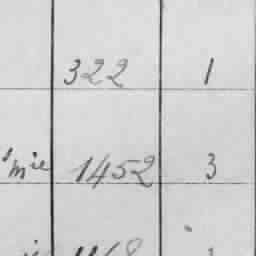 322 1
mie 1452 3